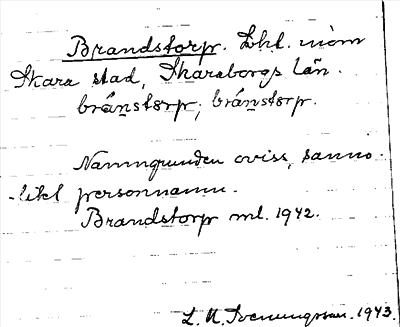 Brandstorp. Lht. inom
Skara stad, Skaraborgs län.
brånstorp, brånstorp.
Namngrunden oviss, sanno-
-likt personnamn.
Brandstorp ml. 1942.
L. N. Svenungsson. 1943.